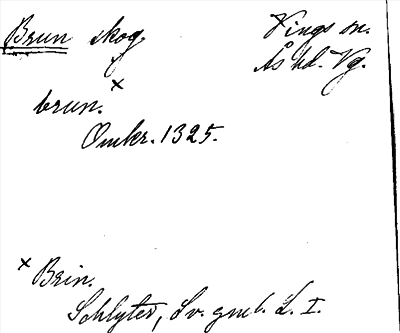 Brun skog. Vings sn.
Ås hd. Vg.
brun.ˣ
Omkr. 1325.
ˣ Brin.
Schlyter, Sv. gml. L. I.